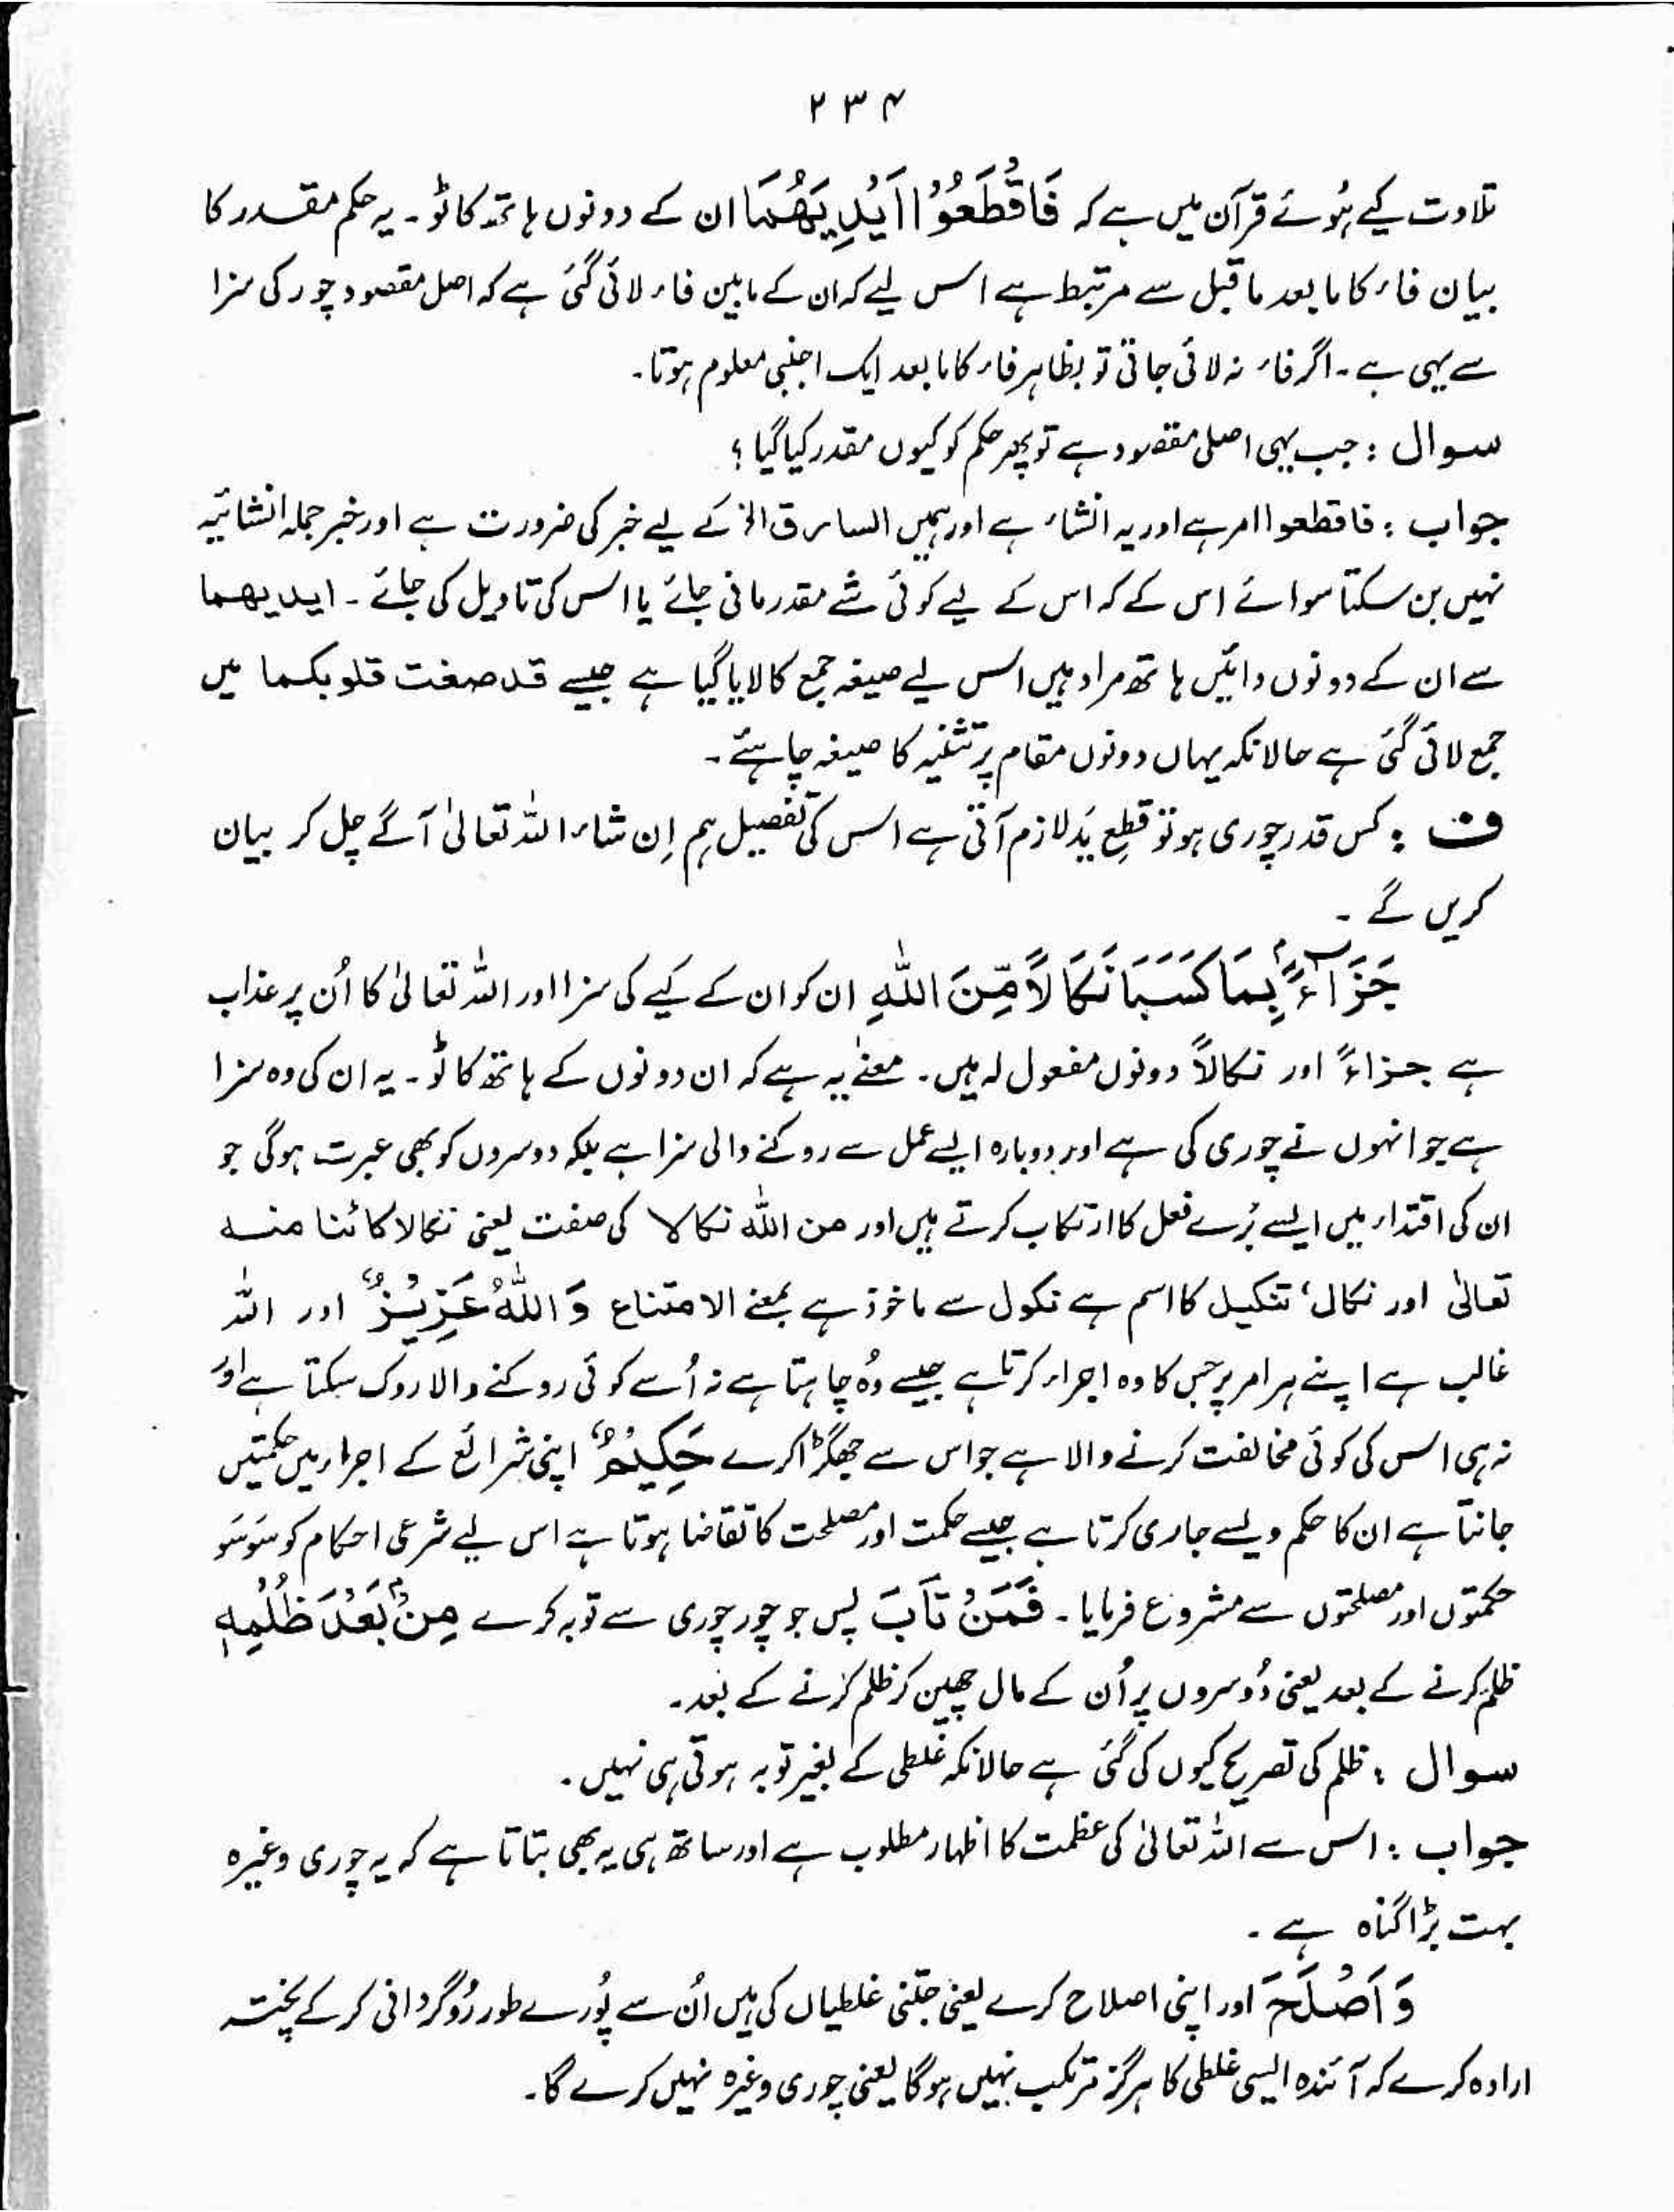 ۲۳۴
تلاوت کیے ہُوئے قرآن میں ہے کہ فَاقْطَعُوْۤا اَیْدِیَهُمَا ان کے دونوں ہاتھ کاٹو۔ یہ حکم مقدر کا
بیان فاء کا مابعد ماقبل سے مرتبط ہے اس لیے کہ ان کے مابین فاء لائی گئی ہے کہ اصل مقصود چور کی سزا
سے یہی ہے۔ اگر فاء نہ لائی جاتی تو بظاہر فاء کا مابعد ایک اجنبی معلوم ہوتا۔
سوال : جب یہی اصلی مقصود ہے تو پھر حکم کو کیوں مقدر کیا گیا ؟
جواب : فاقطعوا امر ہے اور یہ انشاء ہے اور ہمیں السارق الخ کے لیے خبر کی ضرورت ہے اور خبر جملہ انشائیہ
نہیں بن سکتا سوائے اس کے کہ اس کے لیے کوئی شے مقدر مانی جائے یا اس کی تاویل کی جائے ۔ ایدیهما
سے ان کے دونوں دائیں ہاتھ مراد ہیں اس لیے صیغہ جمع کا لایا گیا ہے جیسے قد صغت قلوبکما میں
جمع لائی گئی ہے حالانکہ یہاں دونوں مقام پر تثنیہ کا صیغہ چاہئے ۔
ف : کس قدر چوری ہو تو قطعِ یَد لازم آتی ہے اس کی تفصیل ہم اِن شاء اللہ تعالیٰ آگے چل کر بیان
کریں گے ۔
جَزَآءًۢ بِمَا كَسَبَا نَكَالًا مِّنَ اللّٰهِ ان کو ان کے کیے کی سزا اور اللہ تعالیٰ کا اُن پر عذاب
ہے جزاءً اور نکالاً دونوں مفعول لہ ہیں ۔ معنٰے یہ ہے کہ ان دونوں کے ہاتھ کاٹو ۔ یہ ان کی وہ سزا
ہے جو انہوں نے چوری کی ہے اور دوبارہ ایسے عمل سے روکنے والی سزا ہے بلکہ دوسروں کو بھی عبرت ہوگی جو
ان کی اقتداء میں ایسے بُرے فعل کا ارتکاب کرتے ہیں اور من اللّٰہ نکالا کی صفت یعنی نکالا کائنا منہ
تعالیٰ اور نکال، تنکیل کا اسم ہے نکول سے ماخوذ ہے بمعنے الامتناع وَاللّٰهُ عَزِیْزٌ اور اللہ
غالب ہے اپنے ہر امر پر جس کا وہ اجراء کرتا ہے جیسے وُہ چاہتا ہے نہ اُسے کوئی روکنے والا روک سکتا ہے اور
نہ ہی اس کی کوئی مخالفت کرنے والا ہے جو اس سے جھگڑا کرے حَكِیْمٌ اپنی شرائع کے اجراء میں حکمتیں
جانتا ہے ان کا حکم ویسے جاری کرتا ہے جیسے حکمت اور مصلحت کا تقاضا ہوتا ہے اس لیے شرعی احکام کو سَوسَو
حکمتوں اور مصلحتوں سے مشروع فرمایا ۔ فَمَنْ تَابَ پس جو چور چوری سے توبہ کرے مِنْۢ بَعْدِ ظُلْمِهٖ
ظلم کرنے کے بعد یعنی دُوسروں پر اُن کے مال چھین کر ظلم کرنے کے بعد۔
سوال : ظلم کی تصریح کیوں کی گئی ہے حالانکہ غلطی کے بغیر توبہ ہوتی ہی نہیں ۔
جواب : اس سے اللہ تعالیٰ کی عظمت کا اظہار مطلوب ہے اور ساتھ ہی یہ بھی بتاتا ہے کہ یہ چوری وغیرہ
بہت بڑا گناہ ہے ۔
وَ اَصْلَحَ اور اپنی اصلاح کرے یعنی جتنی غلطیاں کی ہیں اُن سے پُورے طور رُوگردانی کر کے پختہ
ارادہ کرے کہ آئندہ ایسی غلطی کا ہرگز مرتکب نہیں ہوگا یعنی چوری وغیرہ نہیں کرے گا۔